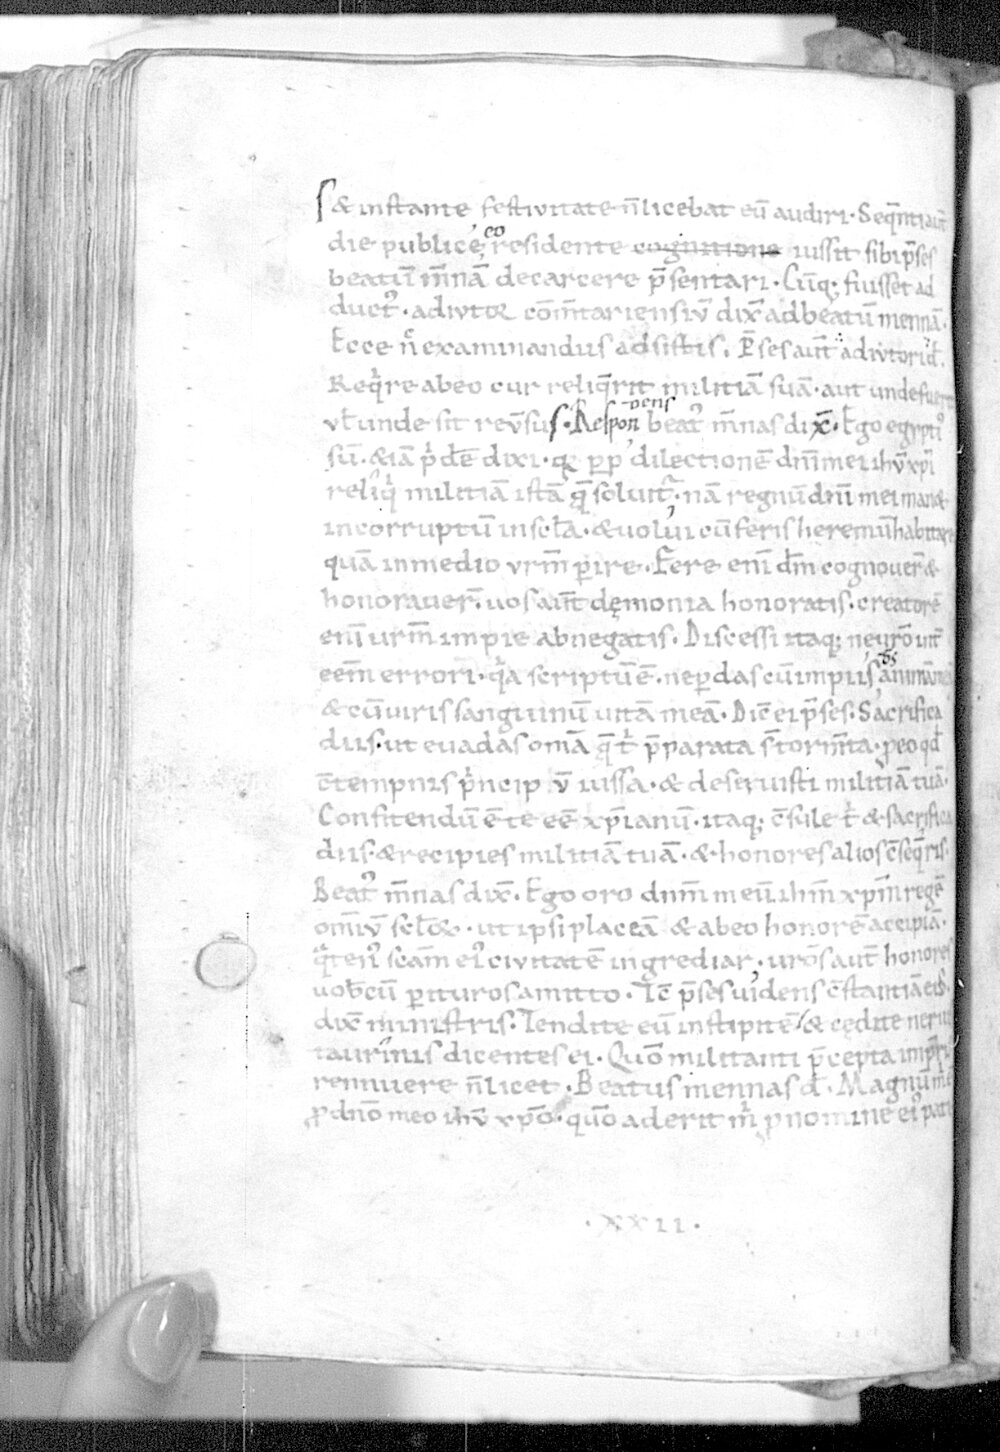 S& instante festivitate n̄ licebat eū audiri. Seq̄nti aūt
die publicę eo residente cognitione iussit sibi p̄ses
beatū m̄nā de carcere p̄sentari. Cūq; fuisset ad
duct᾽. adiutor cōm̄tariensiū dix̄ ad beatū mennā.
Ecce n̄c examinandus adsistis. P̄ses aūt adiutori d̄.
Req̇re ab eo cur reliq̄rit militiā suā. aut unde
vl̄ unde sit rev̄sus. Respondens beat᾽ m̄nas dix̄. Ego egypti᾽
sū. & iā ṗdē dixi. q; pp̄ dilectionē dn̄i mei ihū xp̄i
reliq̇ militiā istā q̄ soluit᾽. nā regnū dn̄i mei man&
incorruptū in scl̄a. & volui cū feris heremū habitare
quā in medio vr̄m p̄ire. Fere enī dm̄ cognover̄ &
honoraver̄. vos aūt dęmonia honoratis. creatorē
enī ur̄m impie abnegatis. Discessi itaq; ne ur̄o int̄
eēm errori. q̇a scriptū ē. ne p̄das cū impiis ds animā
& cū viris sanguinū vitā meā. Dic̄ ei p̄ses. Sacrifica
diis. ut evadas om̄a q̄ ṫ p̄parata s̄t torm̄ta. p eo qd̄
c̄tempnis ṗncipū iussa. & deseruisti militiā tuā.
Confitendū ē te eē xp̄ianū. itaq; c̄sule ṫ & sacrifica
diis. & recipies militiā tuā. & honores alios c̄seq̄ris.
Beat᾽ m̄nas dix̄. Ego oro dnm̄ meū ihm̄ xpm̄ regē
om̄iū scl̄o&. ut ipsi placeā & ab eo honorē accipiā.
q̇ten᾽ scām ei᾽ civitatē ingrediar. vr̄os aūt honores
vob̄cū p̄ituros amitto. Tc̄ p̄ses videns c̄stantiā ei᾽.
dix̄ ministris. Tendite eū in stipitē & cędite nervis
taurinis dicentes ei. Quō militanti p̄cepta imp̄ri
rennuere n̄ licet. Beatus mennas d̄. Magnū m̄
p dn̄o meo ihū xp̄o. quō aderit ṁ p nomine ei᾽ pati
. XXII .